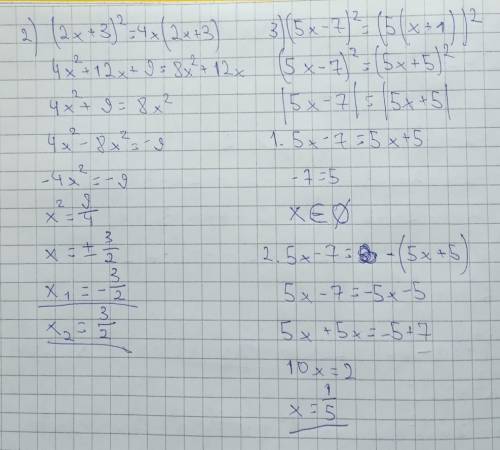 2) (2x+3)²=4x(2x+3)
4x²+12x+9=8x²+12x
4x²+9=8x²
4x²-8x²=-9
-4x²=-9
x²=9/4
x=±3/2
x₁=-3/2
x₂=3/2
3) (5x-7)²=(5(x+1))²
(5x-7)²=(5x+5)²
|5x-7|=|5x+5|
1. 5x-7=5x+5
-7=5
x∈∅
2. 5x-7=-(5x+5)
5x-7=-5x-5
5x+5x=-5+7
10x=2
x=1/5